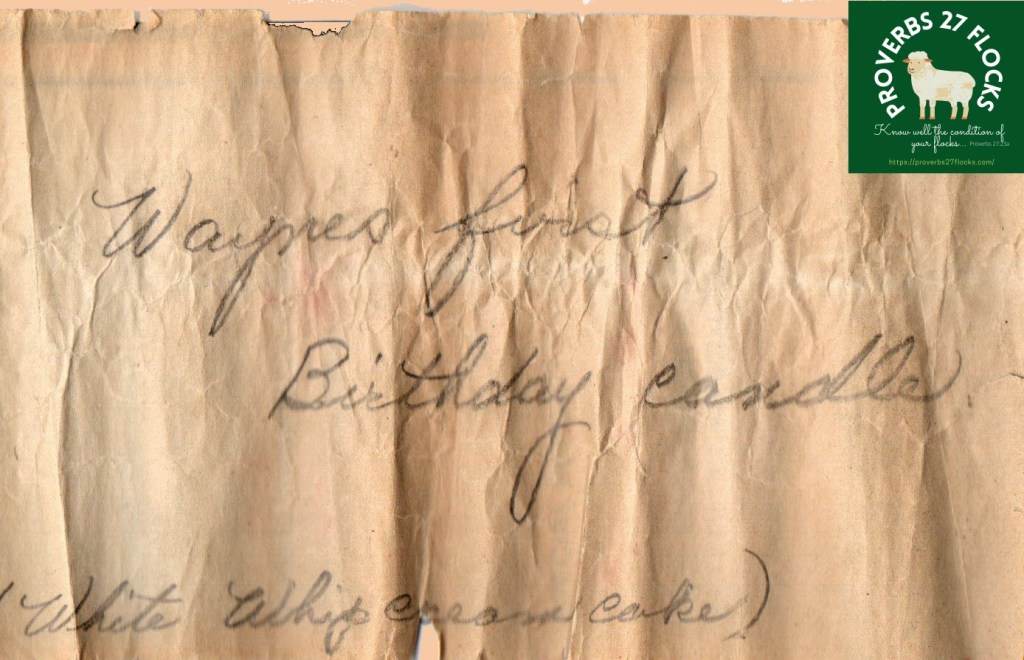 PROVERBS 27 FLOCKS
Know well the condition of
your flocks... Proverbs 27:23a
https://proverbs27flocks.com/
Waynes first
Birthday candle
(White Whip cream cake)